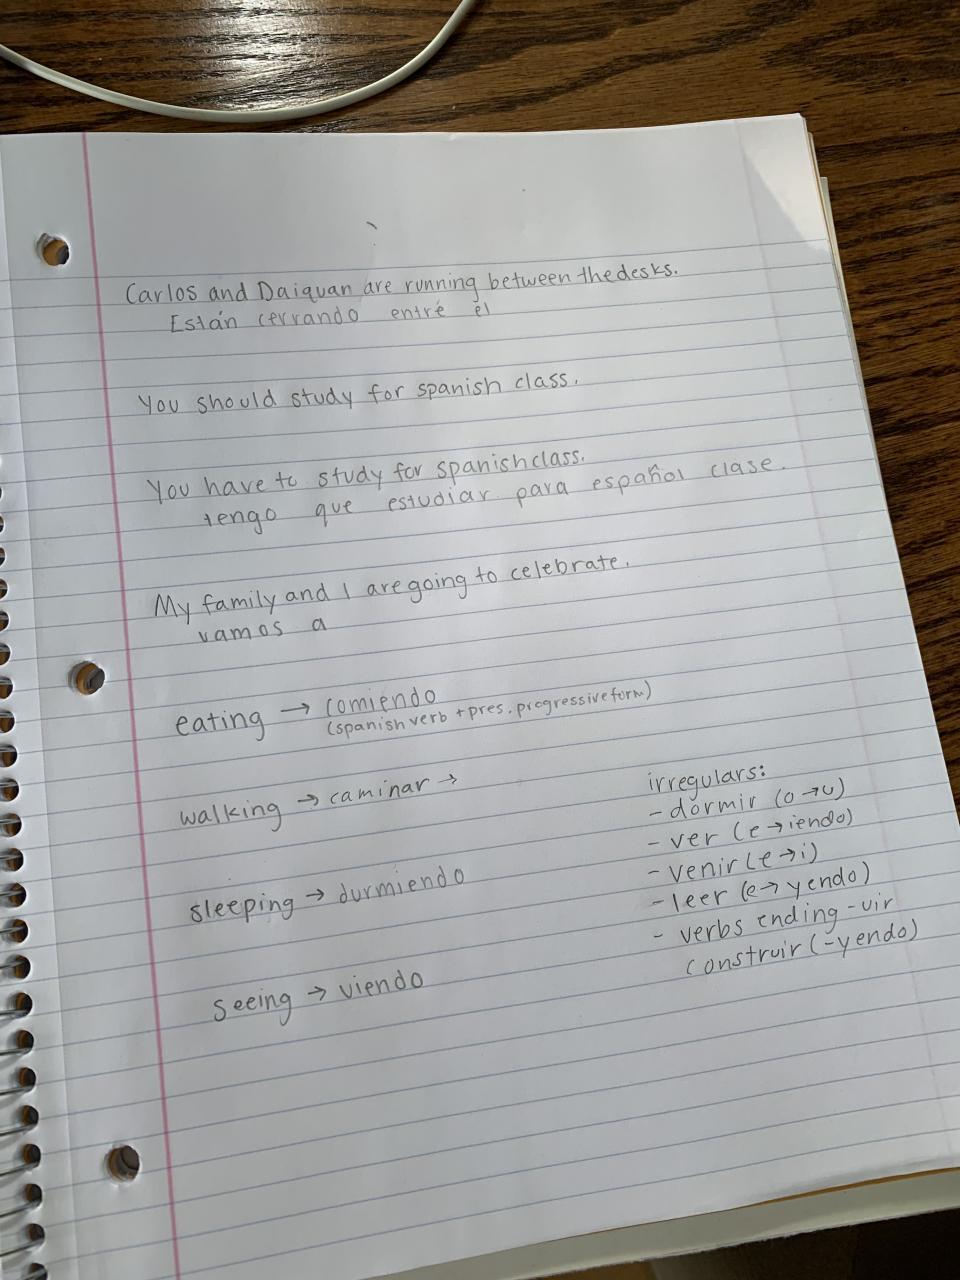 Carlos and Daiquan are running between the desks.
Están cerrando entré el
You should study for spanish class.
You have to study for spanish class.
tengo que estudiar para español clase.
My family and I are going to celebrate.
vamos a
eating → comiendo
(spanish verb + pres. progressive form)
walking → caminar →
sleeping → durmiendo
seeing → viendo
irregulars:
- dormir (o→u)
- ver (e→iendo)
- venir (e→i)
- leer (e→yendo)
- verbs ending -uir
construir (-yendo)